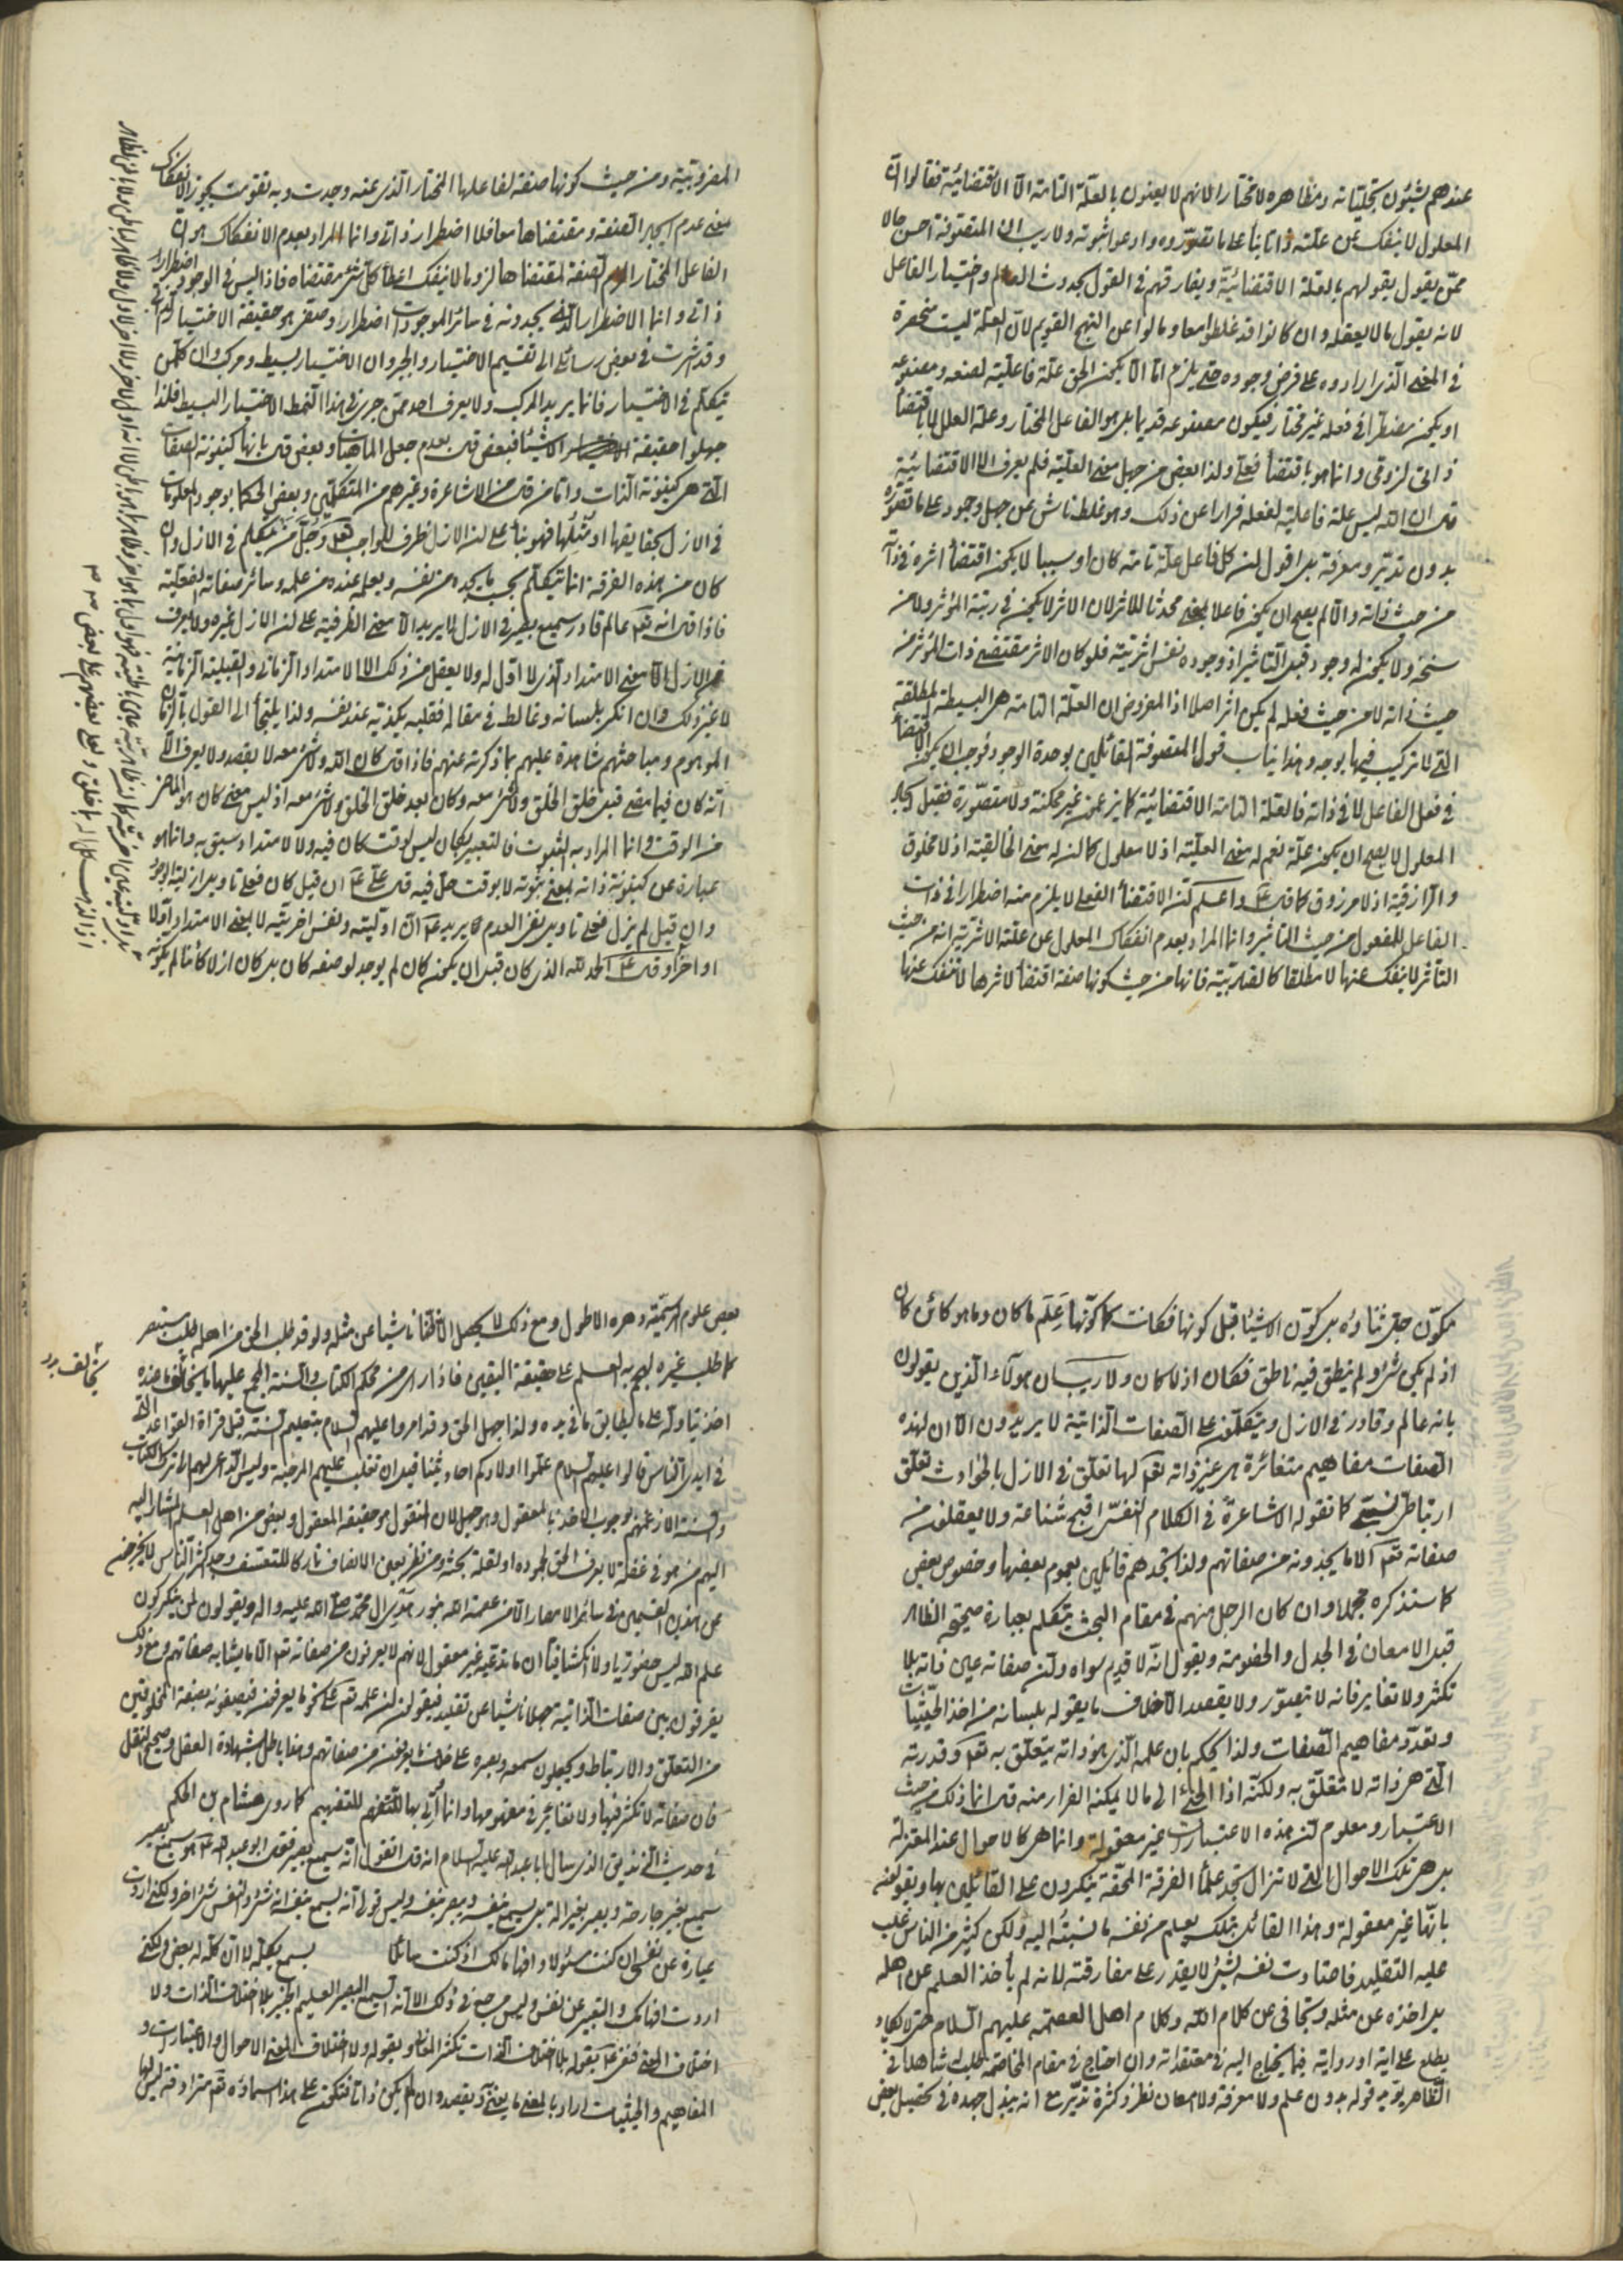 عندهم بشئون تجلياته ومظاهره لا مختارا لانهم لا يعنون بالعلة التامة الا الاقتضائية فقالوا ان
المعلول لا ينفك عن علته ذاتا بناء على ما تصوروه وادعوا ثبوته ولا ريب ان المتصوفة احسن حالا
ممن يقول بقولهم بالعلة الاقتضائية ويفارقهم في القول بحدوث العالم واختيار الفاعل
لانه يقول ما لا يعقله وان كانوا قد غلطوا معا ومالوا عن النهج القويم لان العلة ليست منحصرة
في المعنى الذي ارادوه على فرض وجوده حتى يلزم اما الا يكون الحق علة فاعلية لصنعه ومصنوعه
او يكون مضطرا في فعله غير مختار فيكون مصنوعه قديما بل هو الفاعل المختار وعلة العلل لا باقتضاء
ذاتى لزوقى وانما هو باقتضاء فعلى ولذا بعض من جهل معنى العلية فلم يعرف الا الاقتضائية
قال ان الله ليس علة فاعلية لفعله فرارا عن ذلك وهو غلط ناش عن جهل وجود على ما تصوره
بدون تدبر ومعرفة بل اقول ان كل فاعل علة تامة كان او سببا لا يكون اقتضاء اثره في ذاته
من حيث ذاته والا لم يصح ان يكون فاعلا بمعنى محدثا للاثر لان الاثر لا يكون في رتبة المؤثر ولا من
سنخه ولا يكون له وجود قبل التاثير اذ وجوده نفس اثريته فلو كان الاثر مقتضى ذات المؤثر من
حيث ذاته لا من حيث فعله لم يكن اثرا اصلا اذ المفروض ان العلة التامة هي البسيطة المطلقة
التي لا تركيب فيها بوجه وهذا يناسب قول المتصوفة القائلين بوحدة الوجود فوجب ان يكون الاقتضاء
في فعل الفاعل لا في ذاته فالعلة التامة الاقتضائية كما يزعمون غير ممكنة ولا متصورة فقبل ايجاد
المعلول لا يصح ان يكون علة نعم له معنى العلية اذ لا معلول كما ان له معنى الخالقية اذ لا مخلوق
والرازقية اذ لا مرزوق كما قال ع واعلم ان الاقتضاء الفعلى لا يلزم منه اضطرارا في ذات
الفاعل للمفعول من حيث التاثير وانما المراد بعدم انفكاك المعلول عن علته الاثرية انه من حيث
التأثر لا ينفك عنها لا مطلقا كالضاربية فانها من حيث كونها صفة اقتضاء لاثرها لا تنفك عنها
المضروبية ومن حيث كونها صفة لفاعلها المختار الذي عنه وجدت وبه تقومت يجوز الانفكاك
بمعنى عدم ايجاد الصفة ومقتضاها معا فلا اضطرار ذاتى وانما المراد بعدم الانفكاك هو ان
الفاعل المختار الزم الصفة لمقتضاها لزوما لا ينفك اعطاء كل شئ مقتضاه فاذا ليس في الوجود اضطرار
ذاتى وانما الاضطرار الذي يجدونه في سائر الموجودات اضطرار وصفى هو حقيقة الاختيار الذاتى
وقد اشرت في بعض رسائلى الى تقسيم الاختيار والجبر وان الاختيار بسيط ومركب وان كل من
يتكلم في الاختيار فانما يريد المركب ولا يعرف احد ممن جرى في هذا النمط الاختيار البسيط فلذا
جهلوا حقيقة الاشياء فبعض قال بعدم جعل الماهيات وبعض قال بانها كينونة الصفات
التي هي كينونة الذات واما من قال من الاشاعرة وغيرهم من المتكلمين وبعض الحكماء بوجود المعلومات
في الازل بحقايقها او مثلها فهو بناء على ان الازل ظرف للواجب تعالى وجل من يتكلم في الازل وان
كان من هذه الفرقة انما يتكلم بحسب ما يجده من نفسه ويعلم عنده من علمه وسائر صفاته الفعلية
فاذا قال انه تعالى عالم قادر سميع بصير في الازل لا يريد الا معنى الظرفية على ان الازل غيره ولا يعرف
من الازل الا معنى الامتداد الذي لا اول له ولا يعقل من ذلك الا الامتداد الزمانى والقبلية الزمانية
لا غير ذلك وان انكر بلسانه وغالط في مقاله فقلبه يكذبه عند نفسه ولذا يلتجأ الى القول بالزمان
الموهوم ومباحثهم شاهدة عليهم بما ذكرته عنهم فاذا قال كان الله ولا شئ معه لا يقصد ولا يعرف الا
انه كان فيما مضى قبل خلق الخلق ولا شئ معه وكان بعد خلق الخلق ولا شئ معه اذ ليس معنى كان هو الماضى
من الوقت وانما المراد به الثبوت فالتعبير بكان ليس لوقت كان فيه ولا لامتداد سبق به وانما هو
عبارة عن كينونة ذاته بمعنى ثبوته لا بوقت حل فيه قال على ع ان قيل كان فعلى تاويل ازلية الوجود
وان قيل لم يزل فعلى تاويل نفى العدم يريد ع ان اوليته ونفس اخريته لا بمعنى الامتداد اولا
او اخرا وقال ع الحمد لله الذي كان قبل ان يكون كان لم يوجد لوصفه كان بل كان ازلا كائنا لم يكونه
مكون جل ثناؤه بل كون الاشياء قبل كونها فكانت كما كونها علم ما كان وما هو كائن كان
اذ لم يكن شئ ولم ينطق فيه ناطق فكان اذ لا كان ولا ريب ان هؤلاء الذين يقولون
بانه عالم وقادر في الازل ويتكلمون على الصفات الذاتية لا يريدون الا ان لهذه
الصفات مفاهيم متغائرة هي غير ذاته تعالى لها تعلق في الازل بالحوادث تعلق
ارتباطى نسبى كما تقوله الاشاعرة في الكلام النفسى اقبح شناعة ولا يعقلون من
صفاته تعالى الا ما يجدونه من صفاتهم ولذا تجدهم قائلين بعموم بعضها وخصوص بعض
كما سنذكره مجملا وان كان الرجل منهم في مقام البحث يتكلم بعبارة صحيحة الظاهر
قبل الامعان في الجدل والخصومة ويقول انه لا قديم سواه وان صفاته عين ذاته بلا
تكثر ولا تغاير فانه لا يتصور ولا يقصد الا خلاف ما يقوله بلسانه من اخذ الحيثيات
وتعدد مفاهيم الصفات ولذا يحكم بان علمه الذي هو ذاته يتعلق به تعالى وقدرته
التي هي ذاته لا تتعلق به ولكنه اذا الجئ الى ما لا يمكنه الفرار منه قال انما ذلك من حيث
الاعتبار ومعلوم ان هذه الاعتبارات غير معقولة وانما هي كالاحوال عند المعتزلة
بل هي تلك الاحوال التي لا تزال تجد علماء الفرقة المحقة ينكرون على القائلين بها ويقولون
بانها غير معقولة وهذا القائل بتلك يعلم من نفسه ما نسبته اليه ولكن كثير من الناس غلب
عليه التقليد فاعتادت نفسه بشئ لا يقدر على مفارقته لانه لم يأخذ العلم عن اهله
بل اخذه عن مثله وتجافى عن كلام الله وكلام اهل العصمة عليهم السلام حتى لا يكاد
يطلع على اية او رواية فيما يحتاج اليه في معتقداته وان احتاج في مقام المخاصمة لطلب شاهدا في
الظاهر يقوى به قوله بدون علم ولا معرفة ولا امعان نظر وكثرة تدبر مع انه يبذل جهده في تحصيل بعض
بعض علوم الرسمية وهره الاطول ومع ذلك لا يحصل الا ظنا ناشيا عن مثله ولو قد طلب الحق من اهله
كما طلب غيره لهجم به العلم على حقيقة اليقين فاذا راى من محكم الكتاب والسنة المجمع عليهما ما يخالف ما عنده
اخذ يتاوله على ما يطابق ما في يده ولذا جهل الحق وقد امروا عليهم السلام بتعليم السنة قبل قراءة القواعد التي
في ايدى الناس قالوا عليهم السلام علموا اولادكم احاديثنا قبل ان تغلب عليهم المرجئة وليس الداعى لهم الى ترك الكتاب
والسنة الا زعمهم بوجوب الاخذ بالمعقول وهو جهل لان المنقول هو حقيقة المعقول وبعض من اهل العلم المشار اليه
اليهم من هو في غفلة لا يعرف الحق لجموده او لقلة بحثه ومن نظر بعين الانصاف تاركا للتعسف وجد اكثر الناس لا يخرجون
عن هذين القسمين في سائر الامصار الا من عصمه الله بنور هدى ال محمد صلى الله عليه واله ويقولون لمن ينكر كون
علم الله ليس حضوريا ولا انكشافيا ان ما تدعيه غير معقول لانهم لا يعرفون من صفاته تعالى الا ما يشابه صفاتهم ومع ذلك
يفرقون بين صفات الذاتية جهلا ناشيا عن تقليد فيقولون ان علمه تعالى على نحو ما يعرفون فيصفونه بصفة المخلوقين
من التعلق والارتباط ويجعلون سمعه وبصره على خلاف ما يعرفون من صفاتهم وهذا باطل بشهادة العقل وصحيح النقل
فان صفاته لا تكثر فيها ولا تغاير في مفهومها وانما أتى بها للتفهم للتفهيم كما روى هشام بن الحكم
في حديث الزنديق الذي سال ابا عبد الله عليه السلام انه قال اتقول انه سميع بصير فقال ابو عبد الله ع هو سميع بصير
سميع بغير جارحة وبصير بغير الة بل يسمع بنفسه ويبصر بنفسه وليس قولى انه يسمع بنفسه انه شئ والنفس شئ اخر ولكنى اردت
عبارة عن نفسى ان كنت مسئولا وافهاما لك اذ كنت سائلا يسمع بكله لا ان كله له بعض ولكنى
اردت افهامك والتعبير عن نفسى وليس مرجعى في ذلك الا انه السميع البصير العليم الخبير بلا اختلاف الذات ولا
اختلاف المعنى فنفى ع بقوله بلا اختلاف الذات تكثر الذات وبقوله ولا اختلاف المعنى الاحوال والاعتبارات و
المفاهيم والحيثيات اراد بالمعنى ما يعنى ويقصد وان لم يكن ذاتا فتكون على هذا اسماؤه تعالى مترادفة ليس لها